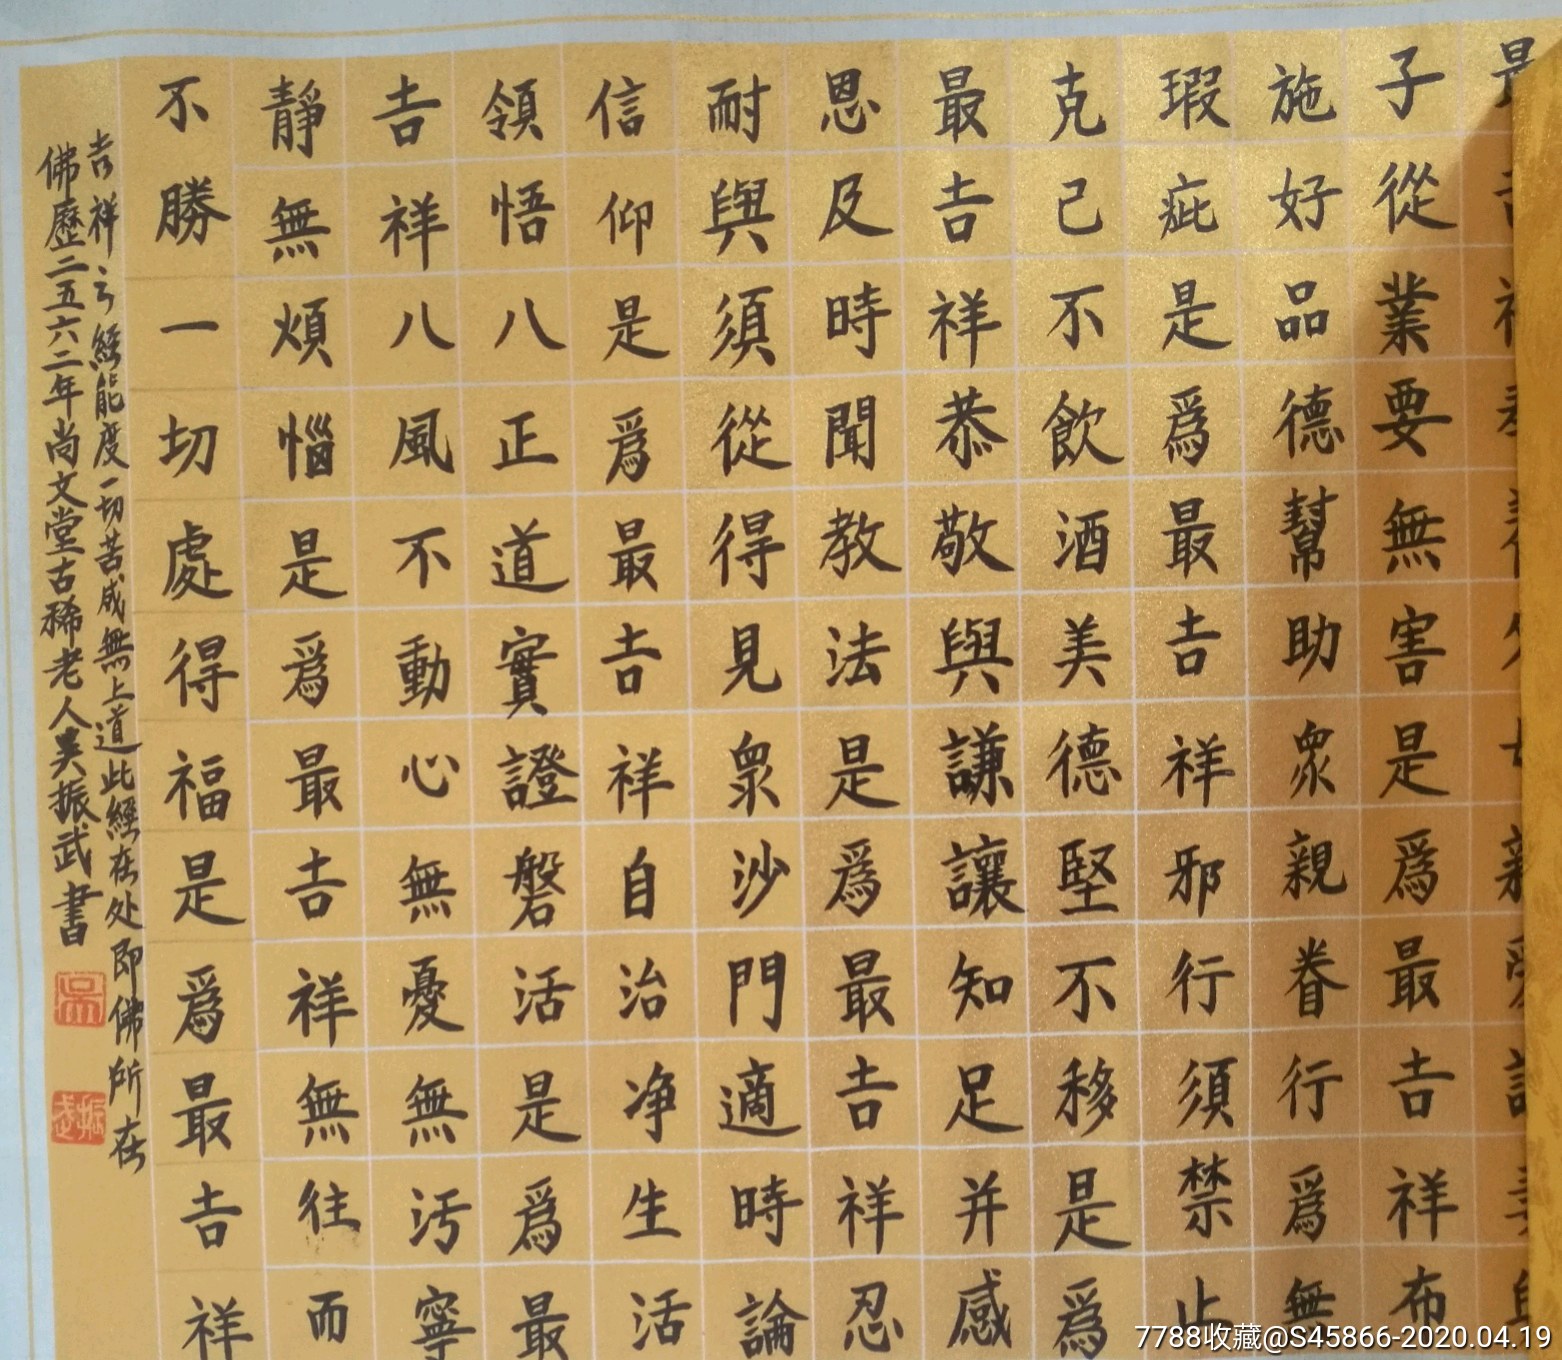 子從業要無害是爲最吉祥布
施好品德幫助眾親眷行爲無
瑕疵是爲最吉祥邪行須禁止
克己不飲酒美德堅不移是爲
最吉祥恭敬與謙讓知足并感
恩及時聞教法是爲最吉祥忍
耐與須從得見眾沙門適時論
信仰是爲最吉祥自治净生活
領悟八正道實證磐活是爲最
吉祥八風不動心無憂無污寧
靜無煩惱是爲最吉祥無往而
不勝一切處得福是爲最吉祥
吉祥云經能度一切苦咸無上道此經在处即佛所在
佛歷二五六二年尚文堂古稀老人吴振武書
7788收藏@S45866-2020.04.19